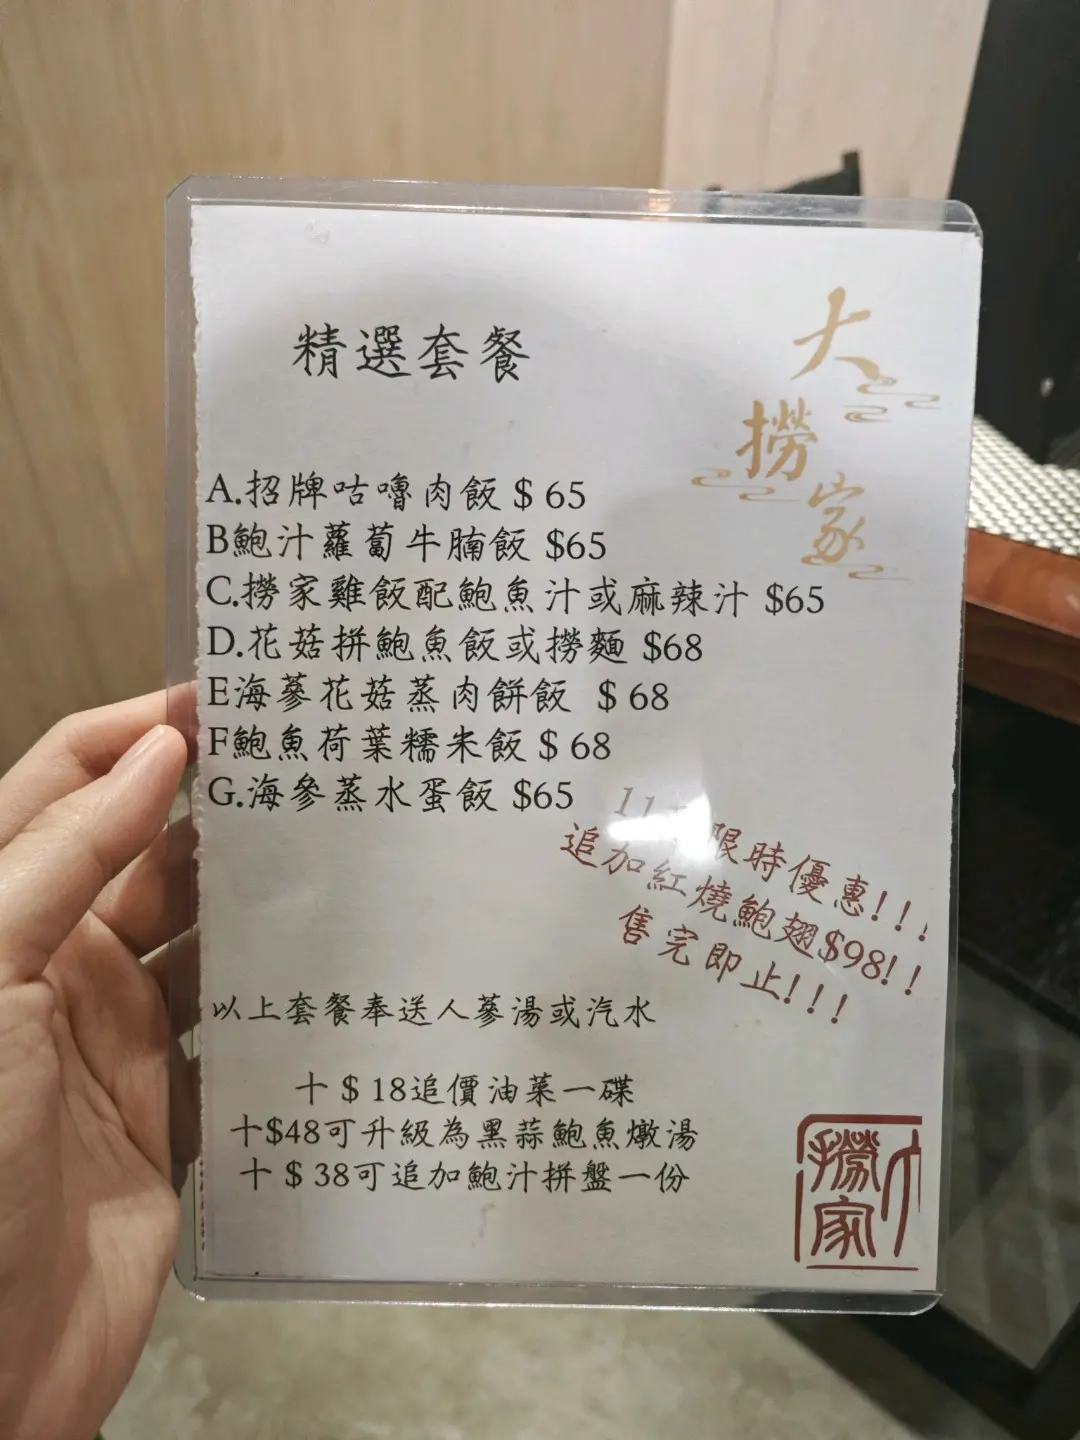 精選套餐
大
撈
家
A.招牌咕嚕肉飯 $ 65
B鮑汁蘿蔔牛腩飯 $65
C.撈家雞飯配鮑魚汁或麻辣汁 $65
D.花菇拼鮑魚飯或撈麵 $68
E海蔘花菇蒸肉餅飯 $ 68
F鮑魚荷葉糯米飯 $ 68
G.海參蒸水蛋飯 $65
11 限時優惠!!!
追加紅燒鮑翅$98!!
售完即止!!!
以上套餐奉送人蔘湯或汽水
十 $ 18追價油菜一碟
十$48可升級為黑蒜鮑魚燉湯
十 $ 38可追加鮑汁拼盤一份
大
撈
家